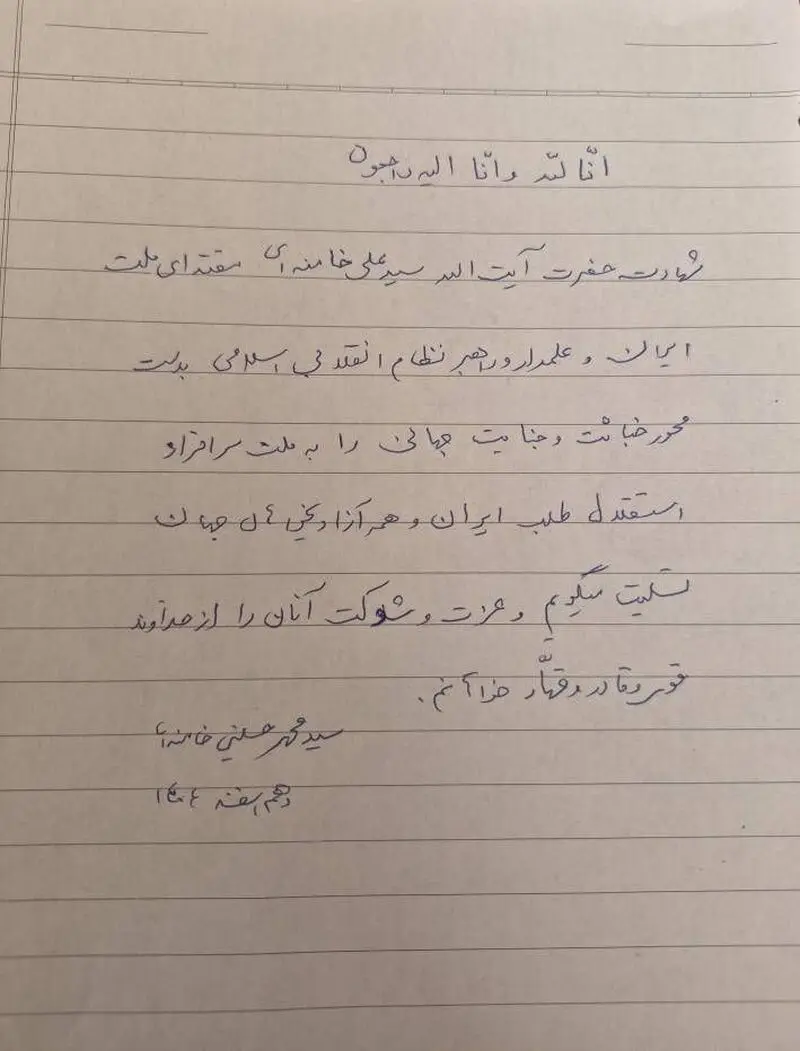 انّا لله و انّا الیه راجعون
شهادت حضرت آیت الله سید علی خامنه ای مقتدای ملت
ایران و علمدار و راهبر نظام انقلابی اسلامی بدست
محور خباثت و جنایت جهانی را به ملت سرافراز و
استقلال طلب ایران و همه آزادیخواهان جهان
تسلیت میگویم و عزت و شوکت آنان را از خداوند
قوی و قادر و قهّار خواهانم.
سید محمد حسینی خامنه ای
دهم اسفند ۱۴۰۴